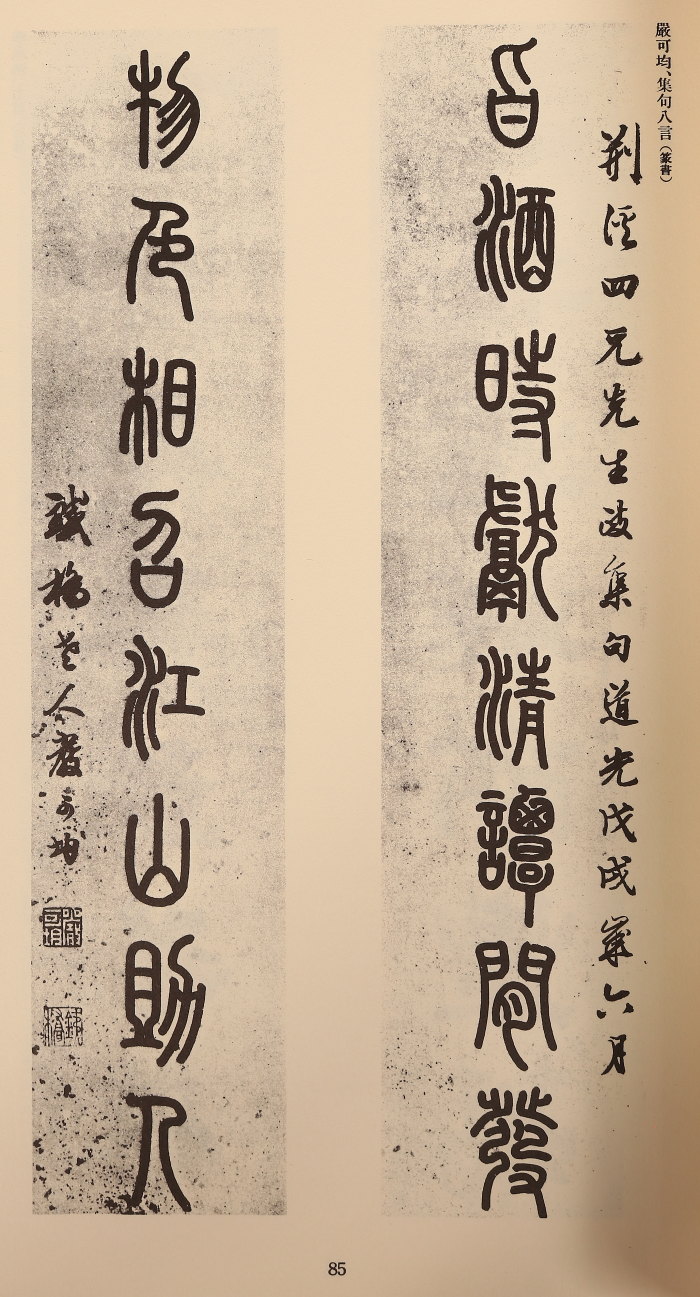 嚴可均、集句八言(篆書)
荆溪四兄先生政集句道光戊戌歲六月
旨酒時獻清譚閒發
物色相召江山助人
鐵橋老人嚴可均
嚴可均
鐵橋
85